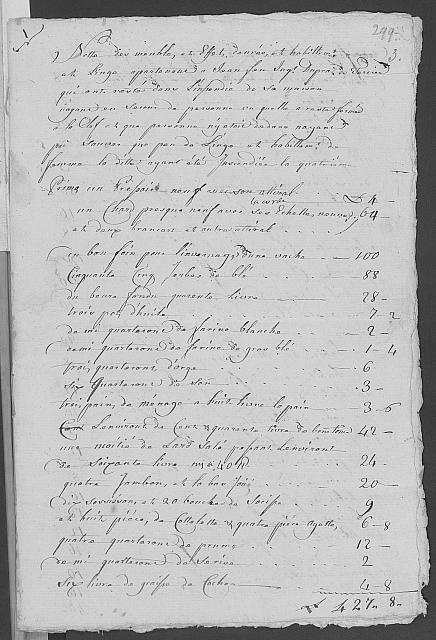 299
3.
Notte des meuble, et Effet, danrée, et habillem.
et Linge apartenant a Jean
qui ont restés dans L'insandie de Sa maison
nayant en Saveur de personne vu quelle a resté fermé
a la Clef et que personne n'y etoit dedans nayant
pû Sauver que peu de Linge et habillem. de
femme la ditte ayant été Insendiée la quatriem
Prima un Pressoir neuf avec son attéral
un Char presque neuf avec Ses Echelle, neuve, 64 -
et deux brancars et autre attéral
Du bon foin pour l'invernage d'une vache - 100
Cinquante Cinq Jerbes de blé - 88
du beure fondu quarente Livre - 28 -
trois pot d'huile - 7 - 2
demi quarteron de farine blanche - 2 -
demi quarteron de farine de gros blé - 1 - 4
trois quarterons d'orge - 6
Six Quarterons de Son - 3 -
trois pain, de ménage a huit livre le pain - 3 - 6
Lenviront de Cent & quarente livre de 42 -
une moitié de Lard Salé pesant Lenviront
de Soixante livre 24 -
quatre Jambon, et le bas 20 -
de Sossisson, et 20 bouche de Sosisse - 9
et huit piéce, de Cottelette & quatre piéce 6 - 8
quatre quarterons de prune - 12 -
demi quarterons de Serise - 2
Six livre de graisse de Cochon 4 - 8
427 „ 8 „